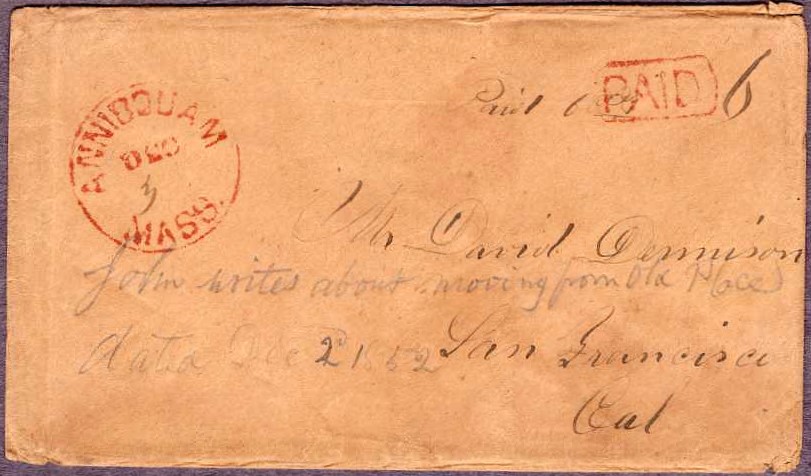 Paid 6 cts PAID 6
ANNIBOUAM
DEC
3
MASS.
Mr David Dennison
John writes about moving from Old Place
dated Dec 2d 1852
San Francisco
Cal